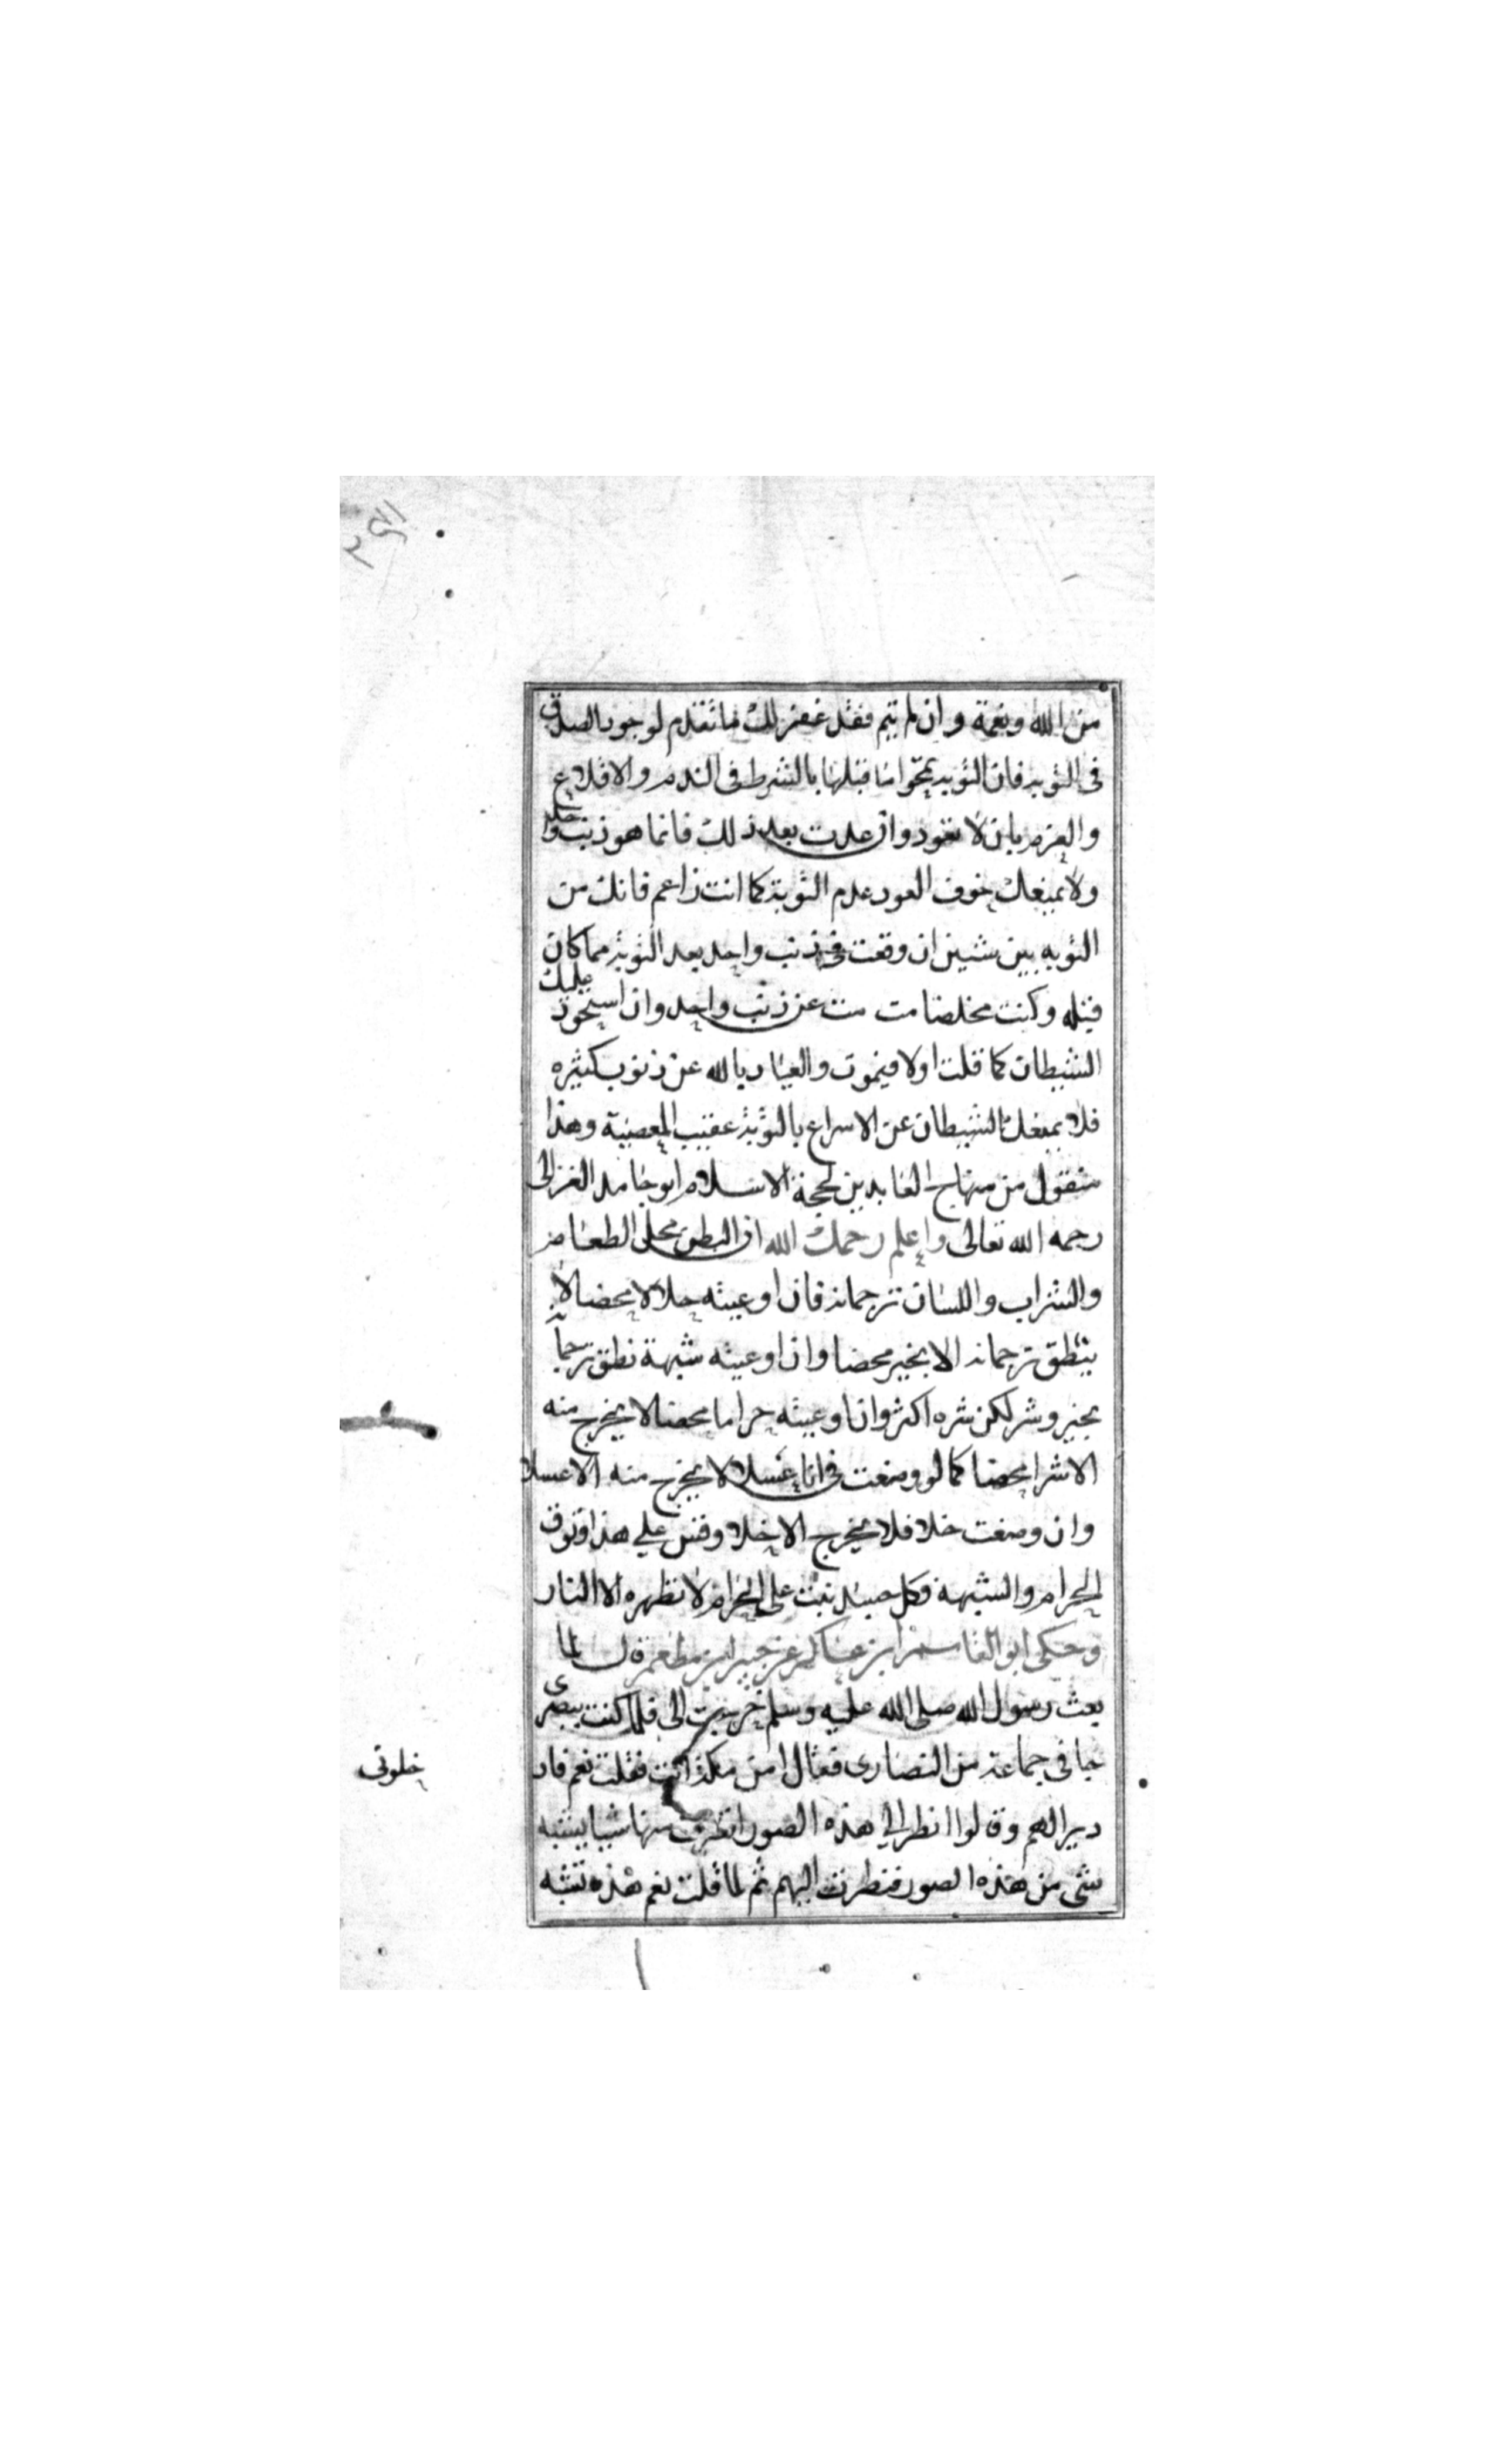 من الله ونعمة وان لم يتم فقد غفر لك ما تقدم لوجود الصدق
في التوبة فان التوبة تمحوا ما قبلها بالشرط في الندم والاقلاع
والعزم بان لا تعود وان عدت بعد ذلك فانما هو ذنب واحد
ولا يمنعك خوف العود عدم التوبة كما انت زاعم فانك من
التوبه بين شيين ان وقعت في ذنب واحد بعد التوبة مما كان
قبله وكنت مخلصا مت مت عن ذنب واحد وان استحوذ عليك
الشيطان كما قلت اولا فيموت والعياد بالله عن ذنوب كثيره
فلا يمنعك الشيطان عن الاسراع بالتوبة عقيب المعصية وهذا
منقول من منهاج العابدين لحجة الاسلام ابو حامد الغزالى
رحمه الله تعالى واعلم رحمك الله ان البطن محل الطعام
والشراب واللسان ترجمانه فان اوعيته حلالا محضا لا
ينطق ترجمانه الا بخير محضا وان اوعيته شبهة نطق ترجمانه
بخير وشر لكن شره اكثر وان اوعيته حراما محضا لا يخرج منه
الا شرا محضا كما لو وضعت في انا عسلا لا يخرج منه الا عسلا
وان وضعت خلا فلا يخرج الا خلا وقس علي هذا وتوق
الحرام والشبهة فكل جسد نبت على الحرام لا تطهره الا النار
وحكى ابو القاسم ابن عساكر عن جبير ابن مطعم قال لما
بعث رسول الله صلى الله عليه وسلم خرجت الى فلما كنت ببصرى
جانى جماعة من النصارى فقال امن مكة انت فقلت نعم
دير الهم وقالوا انظر الي هذه الصور اتعرف منها شيا يشبه
شى من هذه الصور فنظرت اليهم ثم لما قلت نعم هذه تشبه
خلوتى